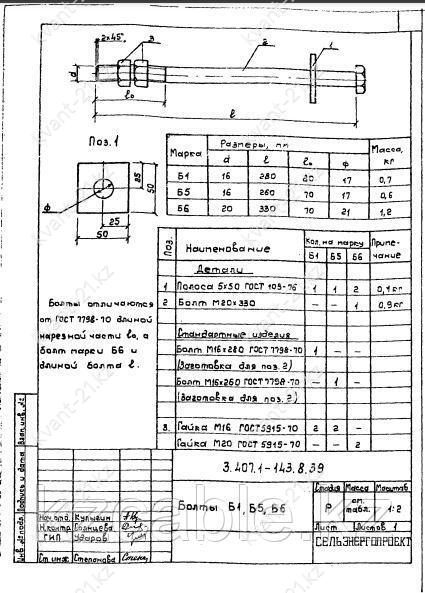 2×45°
3
2
1
d
l₀
l
Поз.1
ф
25
50
25
50
Марка
Размеры, мм
Масса, кг
d
l
l₀
ф
Б1 16 280 80 17 0,7
Б5 16 260 70 17 0,6
Б6 20 330 70 21 1,2
Болты отличаются
от ГОСТ 7798-70 длиной
нарезной части l₀, а
болт марки Б6 и
длиной болта l.
Поз.
Наименование
Кол. на марку
Приме-
чание
Б1 Б5 Б6
Детали
1 Полоса 5×50 ГОСТ 103-76 1 1 2 0,1кг
2 Болт М20×330 – – 1 0,9кг
Стандартные изделия
Болт М16×280 ГОСТ 7798-70 1 – –
(Заготовка для поз. 2)
Болт М16×260 ГОСТ 7798-70 – 1 –
(Заготовка для поз. 2)
3. Гайка М16 ГОСТ 5915-70 2 2 –
Гайка М20 ГОСТ 5915-70 – – 2
3.407.1-143.8.39
Болты Б1, Б5, Б6
Стадия Масса Масштаб
Р см. табл. 1:2
Лист Листов 1
СЕЛЬЭНЕРГОПРОЕКТ
Нач.отд. Кулыгин
Н.контр. Солнцева
ГИП Ударов
Ст.инж. Степанова
Взам.инв.№
Подпись и дата
Инв.№ подл.
kvant-21.kz
kzcable.kz